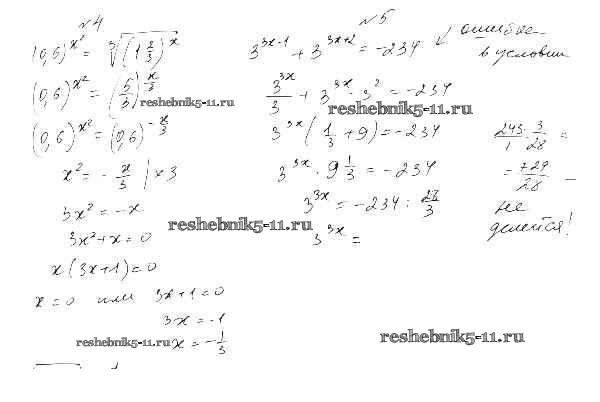 №4
(0,6)^{x^2} = \sqrt[3]{(1\frac{2}{3})^x}
(0,6)^{x^2} = (\frac{5}{3})^{\frac{x}{3}}
reshebnik5-11.ru
(0,6)^{x^2} = (0,6)^{-\frac{x}{3}}
x^2 = -\frac{x}{3} | ×3
3x^2 = -x
3x^2 + x = 0
x(3x+1) = 0
x = 0 или 3x+1 = 0
3x = -1
reshebnik5-11.ru
x = -\frac{1}{3}
№5
3^{3x-1} + 3^{3x+2} = -234
ошибка
в условии
\frac{3^{3x}}{3} + 3^{3x} · 3^2 = -234
reshebnik5-11.ru
3^{3x}(\frac{1}{3} + 9) = -234
3^{3x} · 9\frac{1}{3} = -234
reshebnik5-11.ru
3^{3x} = -234 : \frac{28}{3}
3^{3x} =
\frac{243}{1} · \frac{3}{28} =
= \frac{729}{28} –
не
делится!
reshebnik5-11.ru